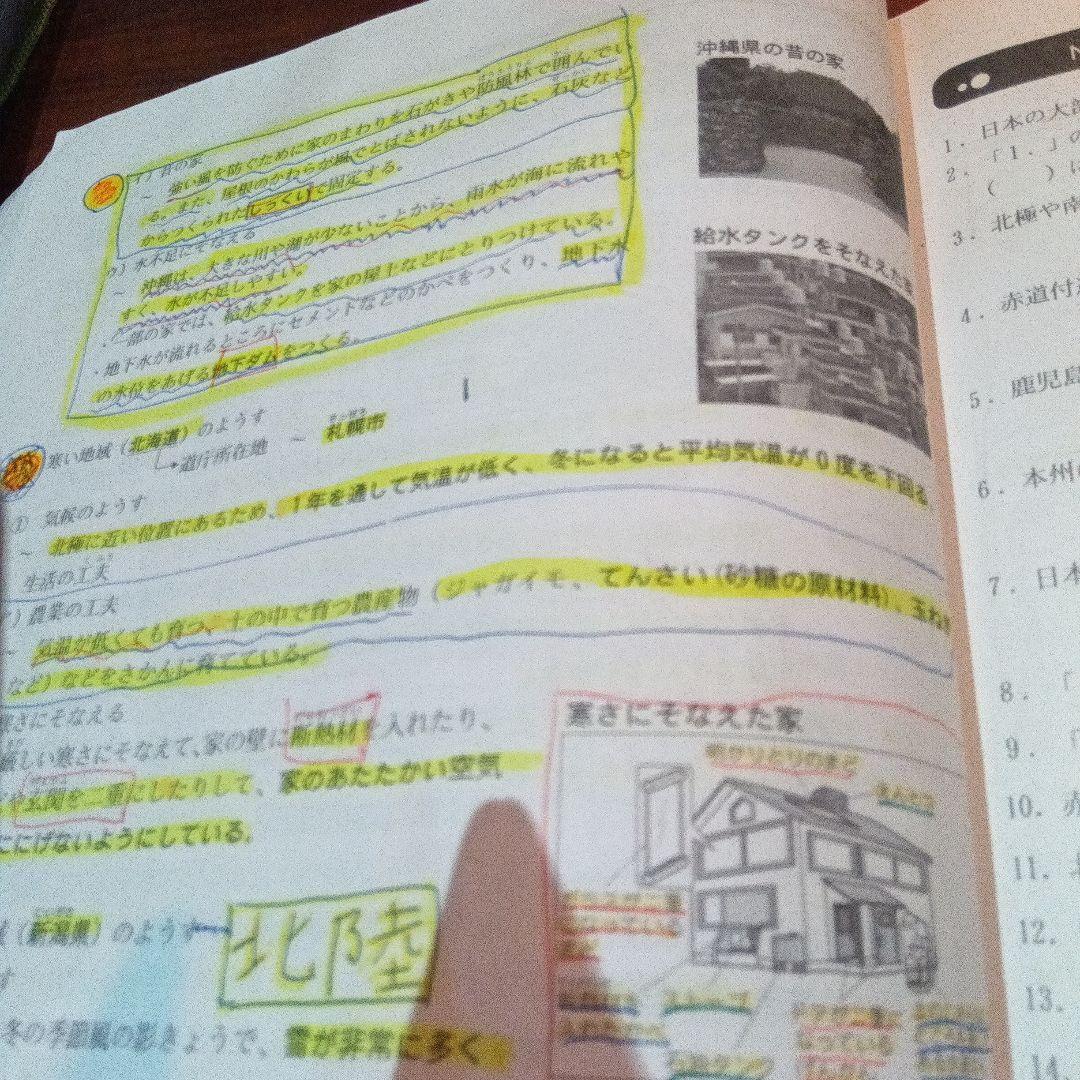 イ）昔の家
～ 強い風を防ぐために家のまわりを石がきや防風林で囲んでい
る。また、屋根のかわらが風でとばされないように、石灰など
からつくられたしっくいで固定する。
ウ）水不足にそなえる
～ 沖縄は、大きな川や湖が少ないことから、雨水が海に流れや
すく、水が不足しやすい。
・一部の家では、給水タンクを家の屋上などにとりつけている。
・地下水が流れるところにセメントなどのかべをつくり、地下水
の水位をあげる地下ダムをつくる。
沖縄県の昔の家
給水タンクをそなえた
寒い地域（北海道）のようす
→道庁所在地 ～ 札幌市
① 気候のようす
～ 北極に近い位置にあるため、1年を通して気温が低く、冬になると平均気温が0度を下回る
生活の工夫
）農業の工夫
～ 気温が低くても育つ、土の中で育つ農産物（ジャガイモ、てんさい(砂糖の原材料)、玉ね
など）などをさかんに育てている。
寒さにそなえる
厳しい寒さにそなえて、家の壁に断熱材を入れたり、
や玄関を二重にしたりして、家のあたたかい空気
ににげないようにしている。
寒さにそなえた家
（新潟県）のようす
北陸
す
冬の季節風の影きょうで、雪が非常に多く
1．日本の大部
2．「1．」の
（　　）に
3．北極や南
4．赤道付近
5．鹿児島
6．本州
7．日本
8．「
9．「
10．赤
11．
12．
13．
14．